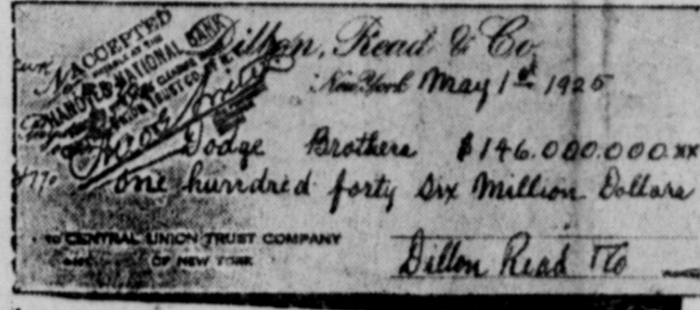 ACCEPTED
PAYABLE AT THE
NATIONAL BANK
Dillon, Read & Co.
New York May 1st 1925
Dodge Brothers $146.000.000.xx
one hundred forty six Million Dollars
TO CENTRAL UNION TRUST COMPANY
OF NEW YORK
Dillon Read & Co